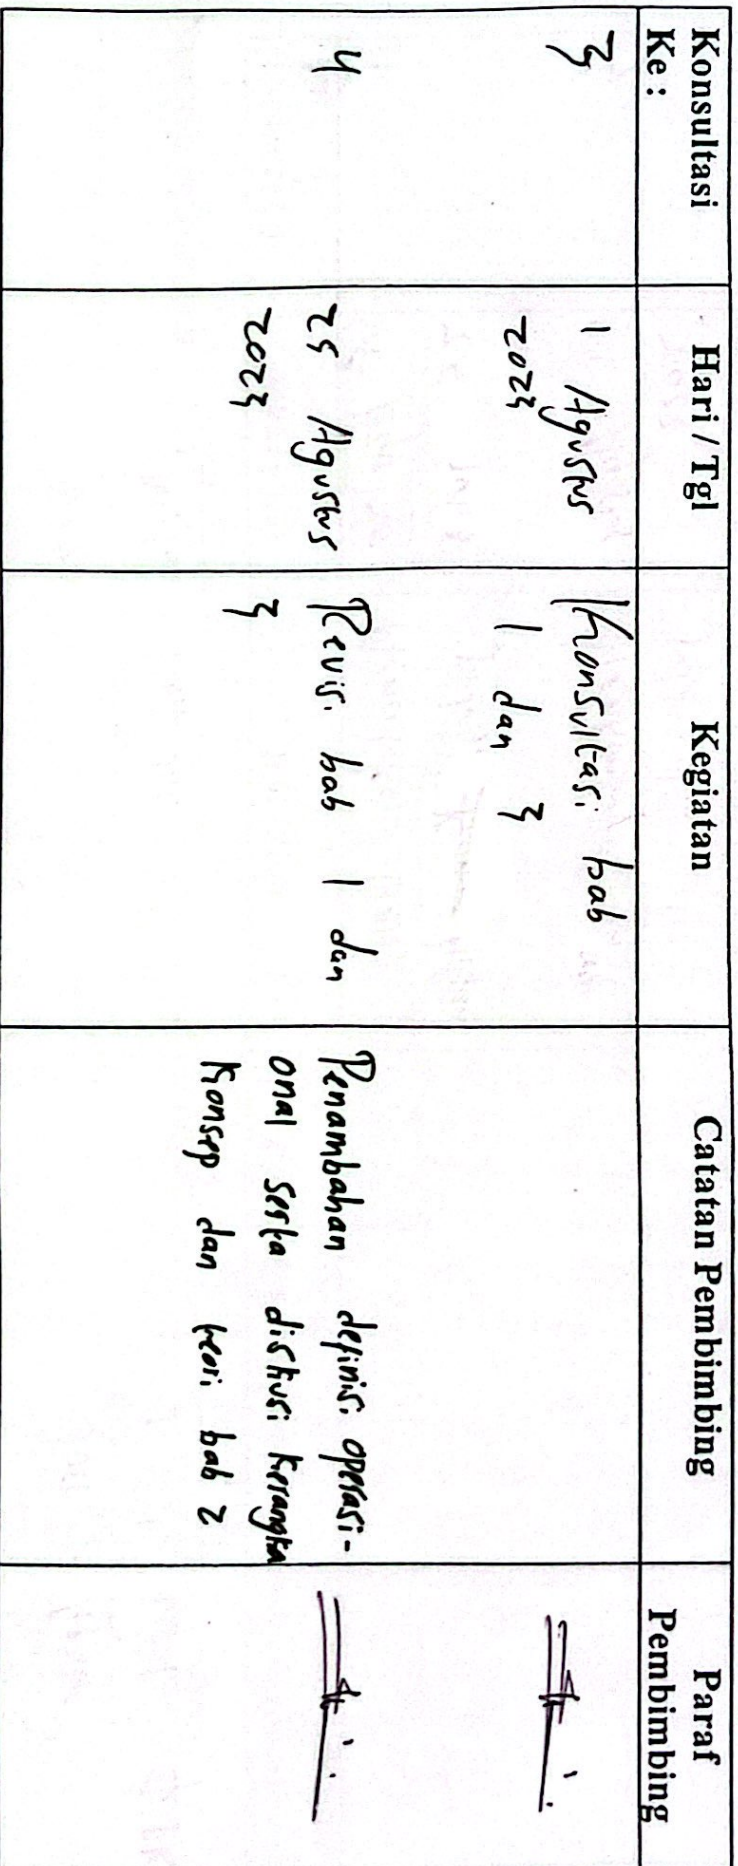 Konsultasi Ke :
Hari / Tgl
Kegiatan
Catatan Pembimbing
Paraf Pembimbing
3
1 Agustus
2023
Konsultasi bab
1 dan 3
4
25 Agustus
2023
Revisi bab 1 dan
3
Penambahan definisi operasi-
onal serta diskusi kerangka
konsep dan teori bab 2